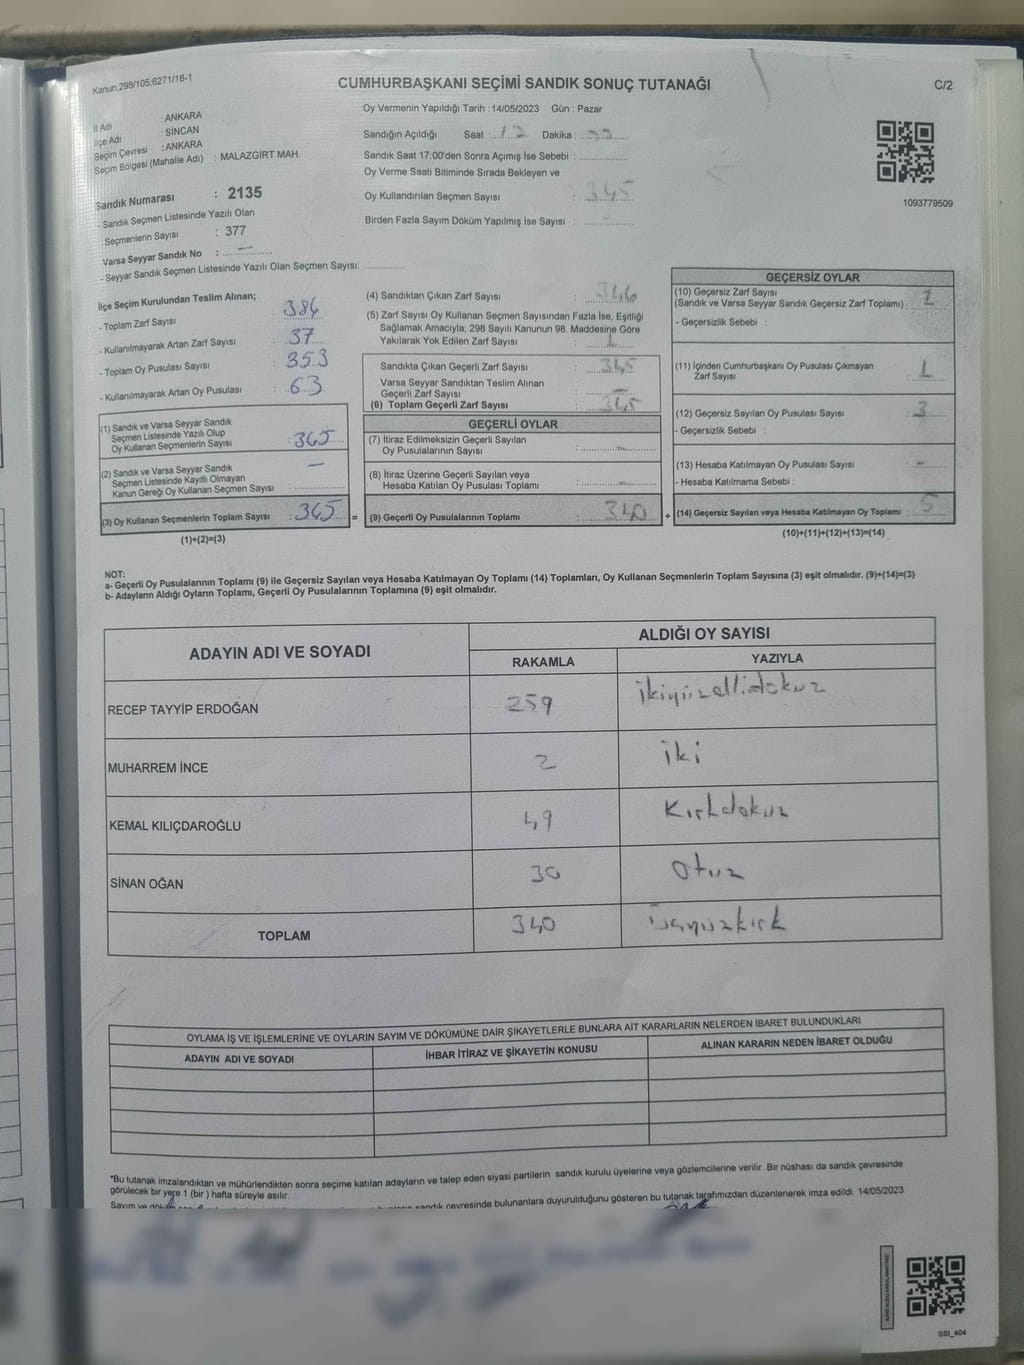 Kanun:298/105;6271/18-1
CUMHURBAŞKANI SEÇİMİ SANDIK SONUÇ TUTANAĞI
C/2
Oy Vermenin Yapıldığı Tarih :14/05/2023 Gün : Pazar
İl Adı : ANKARA
İlçe Adı : SİNCAN
Seçim Çevresi : ANKARA
Seçim Bölgesi (Mahalle Adı) : MALAZGİRT MAH.
Sandığın Açıldığı Saat : Dakika :
Sandık Saat 17:00'den Sonra Açımış İse Sebebi :
Oy Verme Saati Bitiminde Sırada Bekleyen ve
Oy Kullandırılan Seçmen Sayısı : 345
Birden Fazla Sayım Döküm Yapılmış İse Sayısı : -
1093779509
Sandık Numarası : 2135
- Sandık Seçmen Listesinde Yazılı Olan
Seçmenlerin Sayısı : 377
Varsa Seyyar Sandık No : -
- Seyyar Sandık Seçmen Listesinde Yazılı Olan Seçmen Sayısı:
İlçe Seçim Kurulundan Teslim Alınan;
- Toplam Zarf Sayısı : 384
- Kullanılmayarak Artan Zarf Sayısı : 37
- Toplam Oy Pusulası Sayısı : 353
- Kullanılmayarak Artan Oy Pusulası : 63
(1) Sandık ve Varsa Seyyar Sandık
Seçmen Listesinde Yazılı Olup
Oy Kullanan Seçmenlerin Sayısı : 345
(2) Sandık ve Varsa Seyyar Sandık
Seçmen Listesinde Kayıtlı Olmayan
Kanun Gereği Oy Kullanan Seçmen Sayısı : -
(3) Oy Kullanan Seçmenlerin Toplam Sayısı : 345 =
(1)+(2)=(3)
(4) Sandıktan Çıkan Zarf Sayısı : 346
(5) Zarf Sayısı Oy Kullanan Seçmen Sayısından Fazla İse, Eşitliği
Sağlamak Amacıyla; 298 Sayılı Kanunun 98. Maddesine Göre
Yakılarak Yok Edilen Zarf Sayısı : 1
Sandıkta Çıkan Geçerli Zarf Sayısı : 345
Varsa Seyyar Sandıktan Teslim Alınan
Geçerli Zarf Sayısı : -
(6) Toplam Geçerli Zarf Sayısı : 345
GEÇERLİ OYLAR
(7) İtiraz Edilmeksizin Geçerli Sayılan
Oy Pusulalarının Sayısı : -
(8) İtiraz Üzerine Geçerli Sayılan veya
Hesaba Katılan Oy Pusulası Toplamı : -
(9) Geçerli Oy Pusulalarının Toplamı : 340 +
GEÇERSİZ OYLAR
(10) Geçersiz Zarf Sayısı
(Sandık ve Varsa Seyyar Sandık Geçersiz Zarf Toplamı) : 1
- Geçersizlik Sebebi :
(11) İçinden Cumhurbaşkanı Oy Pusulası Çıkmayan
Zarf Sayısı : 1
(12) Geçersiz Sayılan Oy Pusulası Sayısı : 3
- Geçersizlik Sebebi :
(13) Hesaba Katılmayan Oy Pusulası Sayısı : -
- Hesaba Katılmama Sebebi :
(14) Geçersiz Sayılan veya Hesaba Katılmayan Oy Toplamı : 5
(10)+(11)+(12)+(13)=(14)
NOT:
a- Geçerli Oy Pusulalarının Toplamı (9) ile Geçersiz Sayılan veya Hesaba Katılmayan Oy Toplamı (14) Toplamları, Oy Kullanan Seçmenlerin Toplam Sayısına (3) eşit olmalıdır. (9)+(14)=(3)
b- Adayların Aldığı Oyların Toplamı, Geçerli Oy Pusulalarının Toplamına (9) eşit olmalıdır.
ADAYIN ADI VE SOYADI
ALDIĞI OY SAYISI
RAKAMLA YAZIYLA
RECEP TAYYİP ERDOĞAN 259 ikiyüzellidokuz
MUHARREM İNCE 2 iki
KEMAL KILIÇDAROĞLU 49 Kırkdokuz
SİNAN OĞAN 30 Otuz
TOPLAM 340 üçyüzkırk
OYLAMA İŞ VE İŞLEMLERİNE VE OYLARIN SAYIM VE DÖKÜMÜNE DAİR ŞİKAYETLERLE BUNLARA AİT KARARLARIN NELERDEN İBARET BULUNDUKLARI
ADAYIN ADI VE SOYADI İHBAR İTİRAZ VE ŞİKAYETİN KONUSU ALINAN KARARIN NEDEN İBARET OLDUĞU
"Bu tutanak imzalandıktan ve mühürlendikten sonra seçime katılan adayların ve talep eden siyasi partilerin sandık kurulu üyelerine veya gözlemcilerine verilir .Bir nüshası da sandık çevresinde
görülecek bir yere 1 (bir ) hafta süreyle asılır.
Sayım ve sandık çevresinde bulunanlara duyurulduğunu gösteren bu tutanak tarafımızdan düzenlenerek imza edildi. 14/05/2023
SSI_404